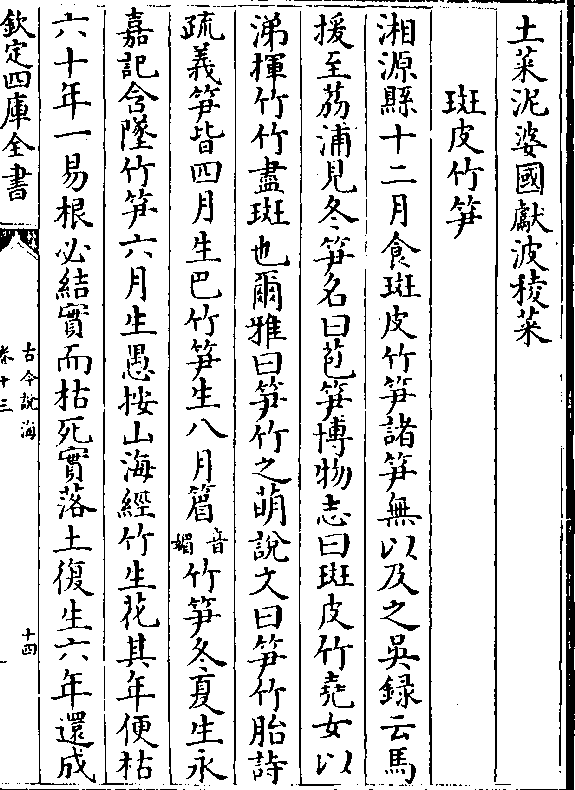 土菜泥婆國獻波稜菜
斑皮竹笋
湘源縣十二月食斑皮竹笋諸笋無以及之吳録云馬
援至荔浦見冬笋名曰苞笋博物志曰斑皮竹堯女以
涕揮竹竹盡斑也爾雅曰笋竹之萌說文曰笋竹胎詩
疏義笋皆四月生巴竹笋生八月䈞音媚竹笋冬夏生永
嘉記含墜竹笋六月生愚按山海經竹生花其年便枯
六十年一易根必結實而枯死實落土復生六年還成
欽定四庫全書
古今說海
卷十三
十四